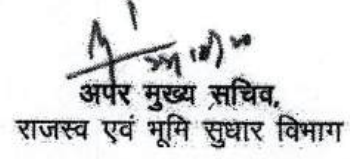 अपर मुख्य सचिव,
राजस्व एवं भूमि सुधार विभाग